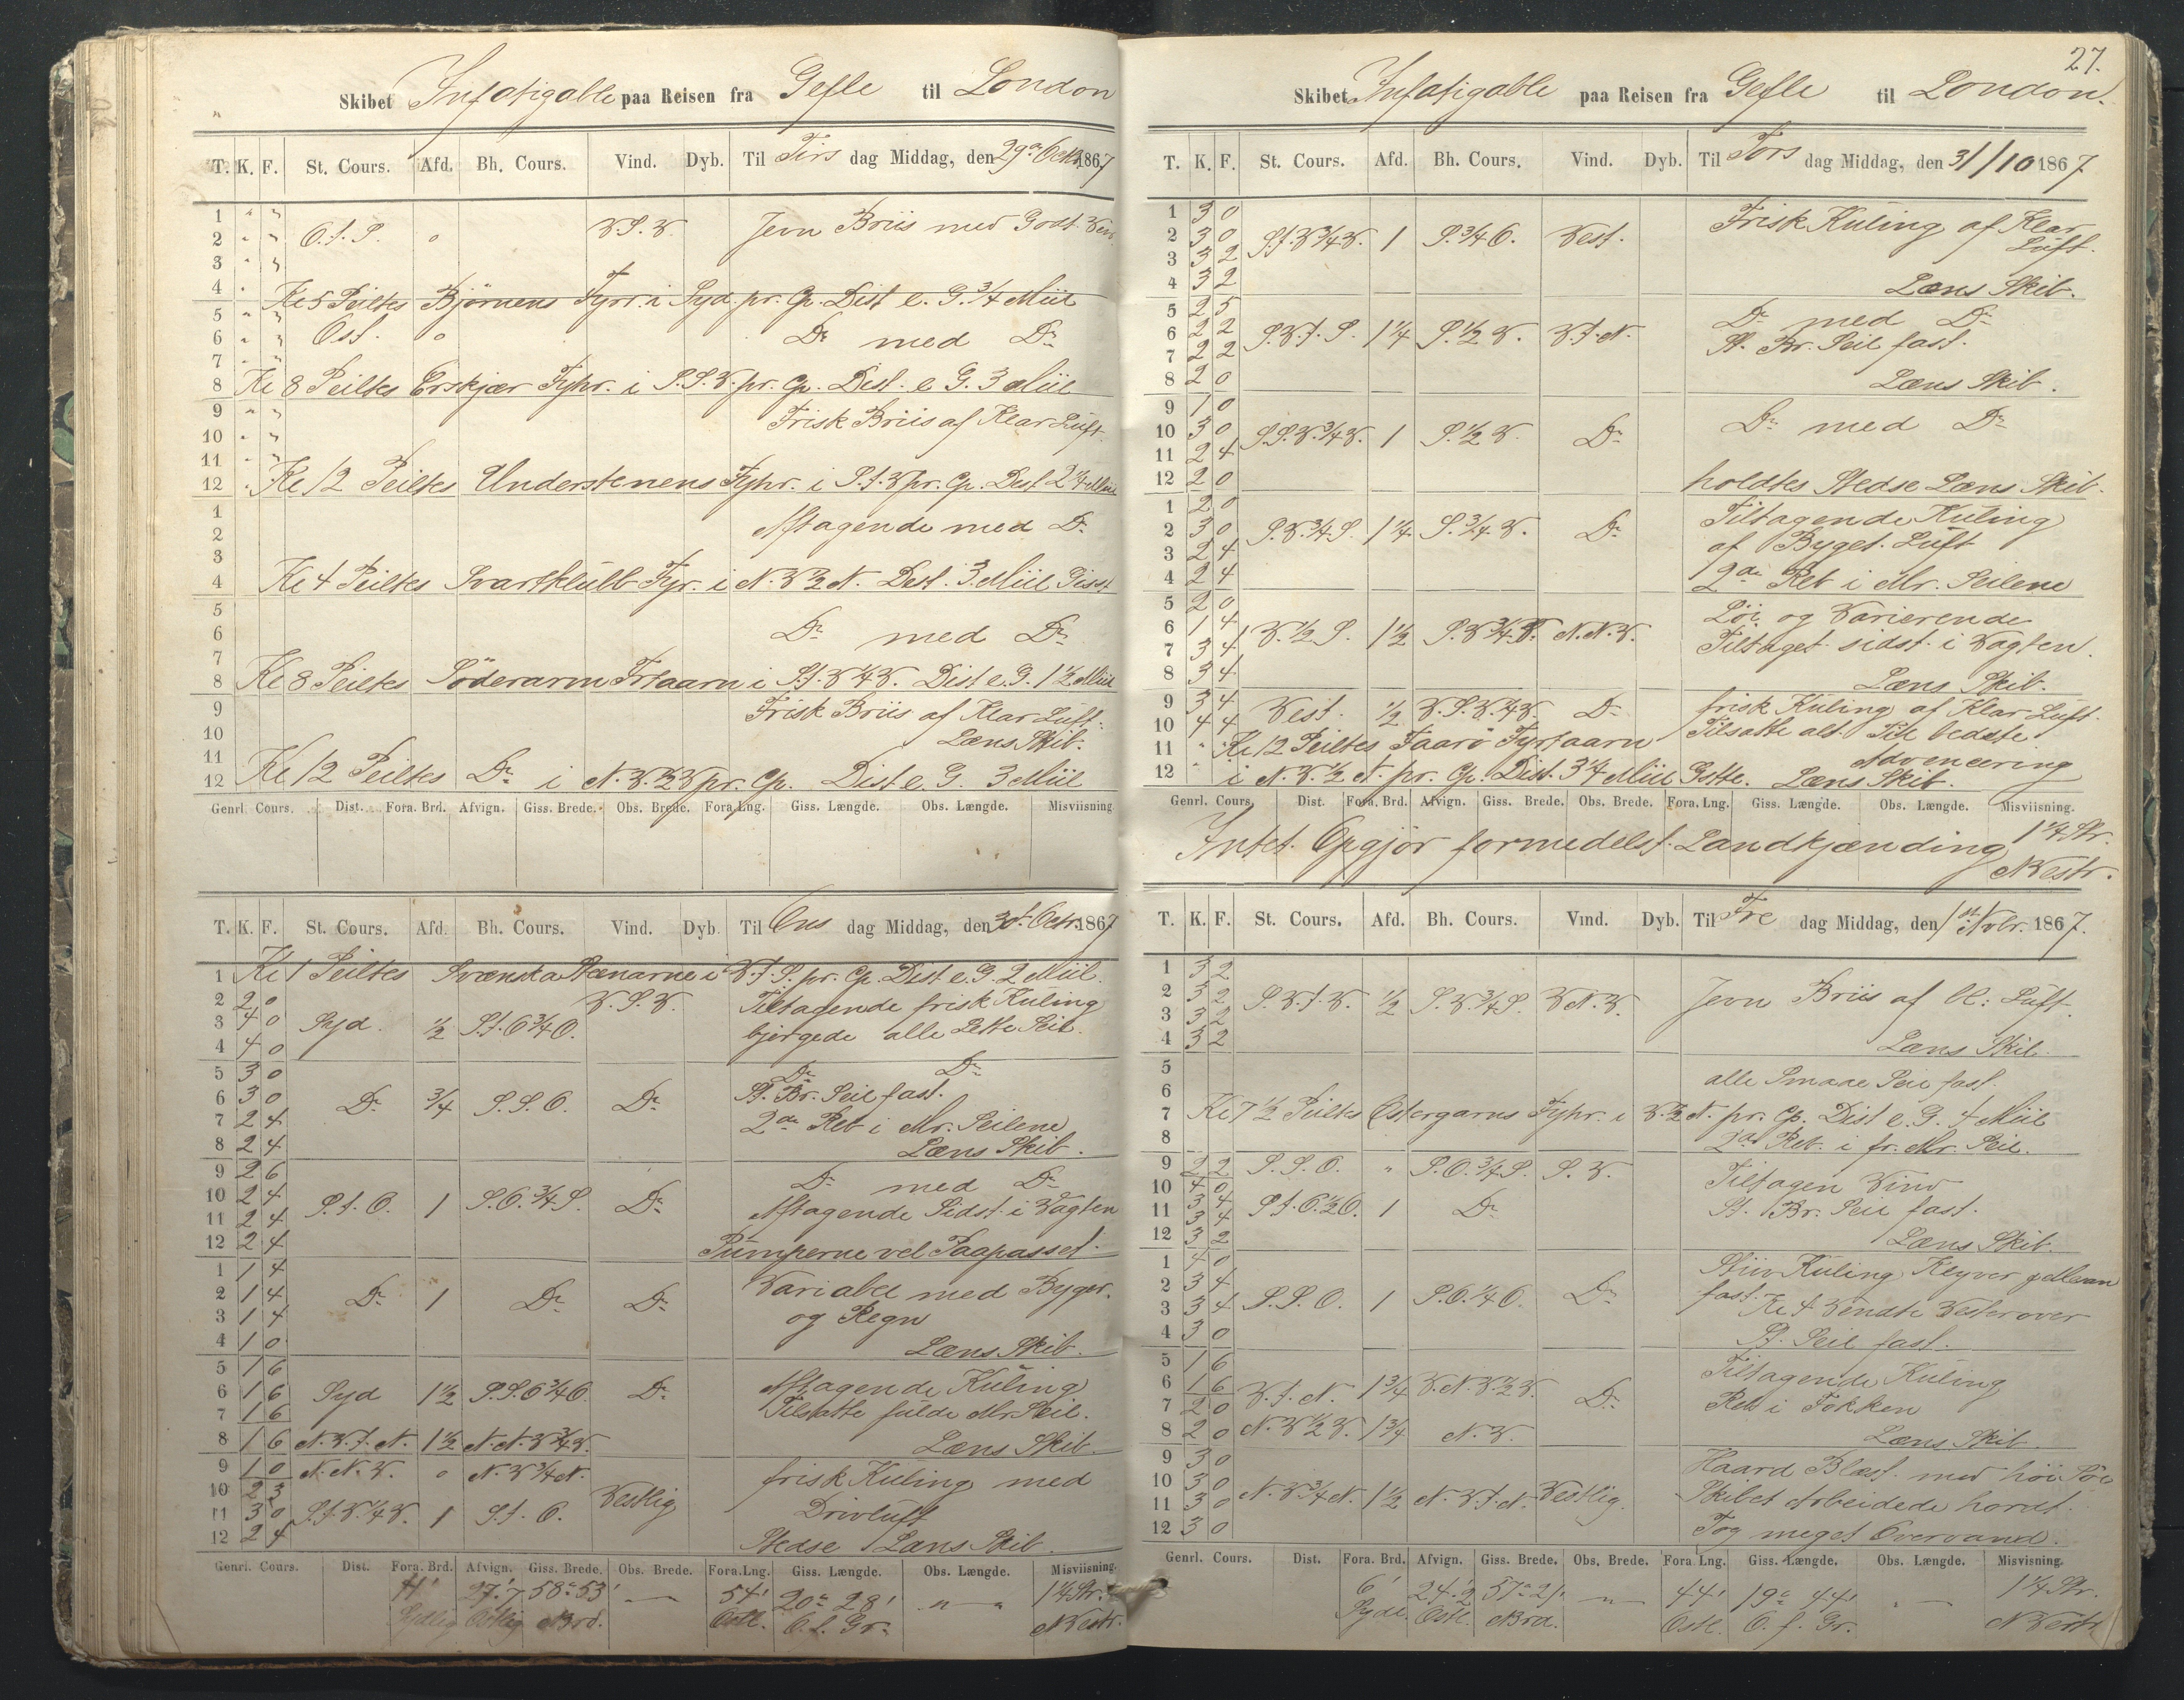 Skibet Infatigable paa Reisen fra Gefle til London
T. K. F. St. Cours. Afd. Bh. Cours. Vind. Dyb. Til Tirs dag Middag, den 29de Octbr 1867
1 " "
2 " " O.t.S. o V.S.V. Jevn Briis med Godt Veir
3 " "
4 " Kl 5 Peiltes Björnens Fyr. i Syd. pr. Cp. Dist e. G. 3/4 Miil
5 " "
6 " " Ost. o Do med Do
7 " "
8 Kl 8 Peiltes Erskjær Fyhr. i S.S.V. pr. Cp. Dist. e G. 3 Miil
9 " "
Frisk Briis af Klar Luft
10 " "
11 " "
12 " Kl 12 Peiltes Understenens Fyhr. i S.t.V pr. Cp. Dist 2 1/4 Miil
1
2 Aftagende med Do
3
4 Kl 4 Peiltes Svartklubb Fyr. i N.V 1/2 N. Dist. 3 Miil Gisst
5
6 Do med Do
7
8 Kl 8 Peiltes Söderarm Frtaarn i S.t.V 1/4 V. Dist e. G. 1 1/2 Miil
9 Frisk Briis af Klar Luft.
10 Læns Skib.
11
12 Kl 12 Peiltes Do i N.V. 1/2 V pr. Cp. Dist e. G. 3 Miil
Genrl. Cours. Dist. Fora. Brd. Afvign. Giss. Brede. Obs. Brede. Fora. Lng. Giss. Længde. Obs. Længde. Misviisning
T. K. F. St. Cours. Afd. Bh. Cours. Vind. Dyb. Til Ons dag Middag, den 30t Octr. 1867
1 Kl 1 Peiltes Svænska Stænarne i V.t.S. pr. Cp. Dist e. G. 2 Miil.
2 2 0 V.S.V. Tiltagende frisk Kuling
3 4 0 Syd. 1/2 S.t.O 3/4 O. bjergede alle Lette Seil.
4 4 0
5 3 0 Do Do
6 3 0 Do 3/4 S.S.O. Do St. Br. Seil fast.
7 2 4 2de Reb i Mr. Seilene
8 2 4 Læns Skib.
9 2 6 Do med Do
10 2 4 S.t.O. 1 S.O. 3/4 S. Do
11 2 4 Aftagende Sidst i Vagten
12 2 4 Pumperne vel Paapasset.
1 1 4 Variabel med Byger.
2 1 4 Do 1 Do Do
3 1 4 og Regn
4 1 0 Læns Skib.
5 1 6 Aftagende Kuling
6 1 6 Syd 1 1/2 S.S.O 3/4 O. Do
7 1 6 Tilsatte fulde Mr. Seil.
8 1 6 N.V.t.N. 1 1/2 N.N.V 3/4 V. Læns Skib.
9 1 0 N.N.V. o N.V 3/4 N. frisk Kuling med
10 2 3 Vestlig
11 3 0 S.t.V. 1/4 V. 1 S.t.O. Drivluft
12 2 4 Stedse Læns Skib.
Genrl. Cours. Dist. Fora. Brd. Afvign. Giss. Brede. Obs. Brede. Fora. Lng. Giss. Længde. Obs. Længde. Misviisning.
11' 27'.7 58° 53' — 54' 20° 28' " " 1 1/4 Str.
Sydlig Ostlig Nrd. Ostl. O. f. Gr. NVestr.
27.
Skibet Infatigable paa Reisen fra Gefle til London.
T. K. F. St. Cours. Afd. Bh. Cours. Vind. Dyb. Til Tors dag Middag, den 31/10 1867.
1 3 0 Frisk Kuling af Klar
2 3 0 S.t.V 3/4 V. 1 S. 3/4 O. Vest. Luft.
3 3 2
4 3 2 Læns Skib.
5 2 5 Do med Do
6 2 2 S.V.t.S. 1 1/4 S. 1/2 V. V.t.N. St. Br. Seil fast.
7 2 2
8 2 0 Læns Skib.
9 1 0
10 3 0 S.S.V. 3/4 V. 1 S. 1/2 V. Do Do med Do
11 2 4
12 2 0 holdtes Stedse Læns Skib.
1 2 0 Tiltagende Kuling
2 3 0 S.V. 3/4 S. 1 1/4 S. 3/4 V. Do
3 2 4 af Byget. Luft
4 2 4 2de Reb i Mr. Seilene
5 2 0 Löi og Varierende
6 1 4 V. 1/2 S. 1 1/2 S.V 3/4 V. N.N.V.
7 3 4 Tiltaget sidst i Vagten.
8 3 4 Læns Skib.
9 3 4 Vest. 1/2 V.S.V. 1/4 V. Do frisk Kuling af Klar Luft.
10 4 4 Tilsatte alt. Til bedste
11 " " Kl 12 Peiltes Faarö Fyrtaarn Advencering
12 " i N.V. 1/2 N. pr. Cp. Dist. 3 1/4 Miil Gstte. Læns Skib.
Genrl. Cours. Dist. Fora. Brd. Afvign. Giss. Brede. Obs. Brede. Fora. Lng. Giss. Længde. Obs. Længde. Misviisning.
Intet Opgjör formedelst Landkjænding 1 1/4 Str.
NVestr.
T. K. F. St. Cours. Afd. Bh. Cours. Vind. Dyb. Til Fre dag Middag, den 1st Novbr. 1867.
1 3 2
2 3 2 S.V.t.V. 1/2 S.V 3/4 S. V.N.V. Jevn Briis af kl: Luft.
3 3 2
4 3 2 Læns Skib.
5 alle Smaae Seil fast.
6
7 Kl 7 1/2 Peiltes Østergarns Fyhr. i V. 1/2 N. pr. Cp. Dist e. G. 4 Miil
8 2de Reb. i fr. Mr. Seil.
9 2 2 S.S.O. " S.O. 3/4 S. S.V. Tiltagen Vind
10 4 0
11 3 4 S.t.O. 1/2 O. 1 Do St. Br. Seil fast.
3 4
12 3 2 Læns Skib.
1 4 0 Stiiv Kuling Klyver & Mesan
2 3 4
3 3 4 S.S.O. 1 S.O. 1/4 O. Do fast. Kl 4 Vendte Vesterover
4 3 0 St. Seil fast.
5 1 6 Tiltagende Kuling
6 1 6 V.t.N. 1 3/4 V.N.V 1/2 V. Do
7 2 0 Reb i Fokken
8 2 0 N.V 1/2 V. 1 3/4 N.V. Læns Skib.
9 3 0 Haard Blæst. med höi Söe
10 3 0
11 3 0 N.V. 3/4 N. 1 1/2 N.V.t.N. Vestlig. Skibet Arbeidede hardt.
12 3 0 Tog meget Overvand.
Genrl. Cours. Dist. Fora. Brd. Afvign. Giss. Brede. Obs. Brede. Fora. Lng. Giss. Længde. Obs. Længde. Misvisning.
6' 24'.2 57° 21' — 44' 19° 44' " — 1 1/4 Str.
Sydl. Ostl. Nrd. Ostl. O. f. Gr. NVestr